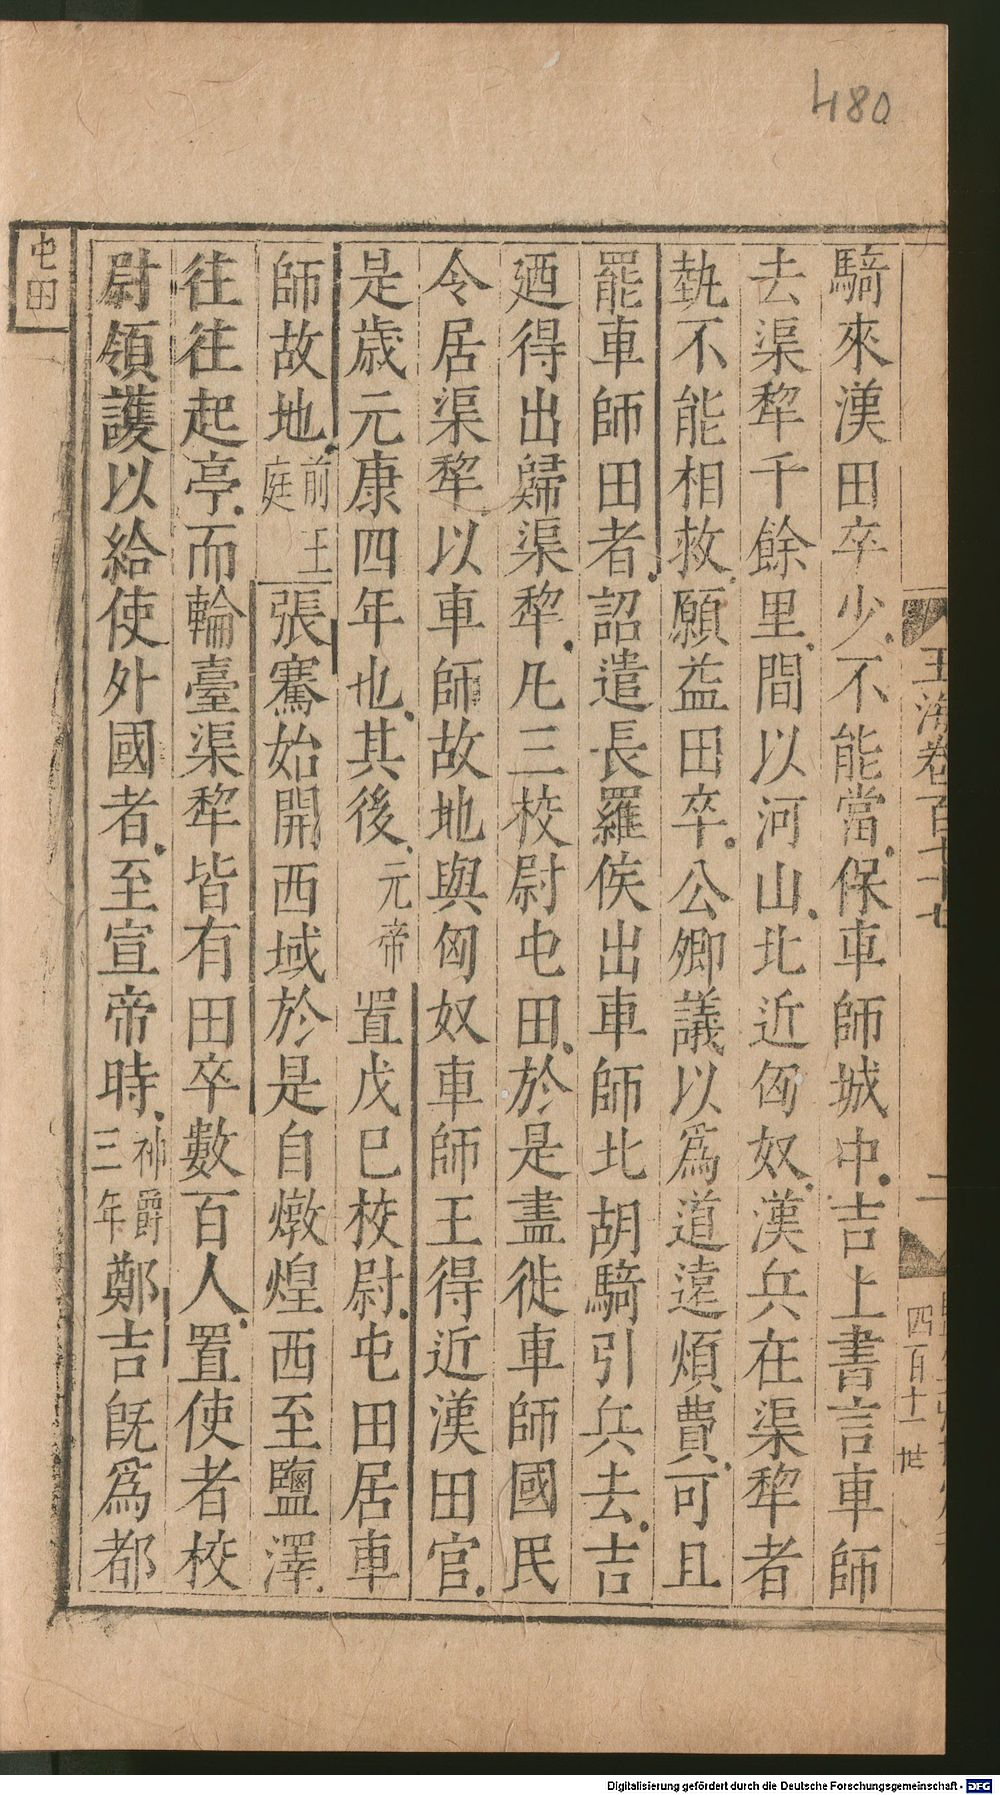 480
玉海卷百七十七
二
四百十一
世
騎來漢田卒少不能當保車師城中吉上書言車師
去渠犂千餘里間以河山北近匈奴漢兵在渠犂者
埶不能相救願益田卒公卿議以爲道遠煩費可且
罷車師田者詔遣長羅侯出車師北胡騎引兵去吉
廼得出歸渠犂凡三校尉屯田於是盡徙車師國民
令居渠犂以車師故地與匈奴車師王得近漢田官
是歲元康四年也其後元帝置戊巳校尉屯田居車
師故地前王庭張騫始開西域於是自燉煌西至鹽澤
往往起亭而輪臺渠犂皆有田卒數百人置使者校
尉領護以給使外國者至宣帝時神爵三年鄭吉旣爲都
屯田
Digitalisierung gefördert durch die Deutsche Forschungsgemeinschaft - DFG